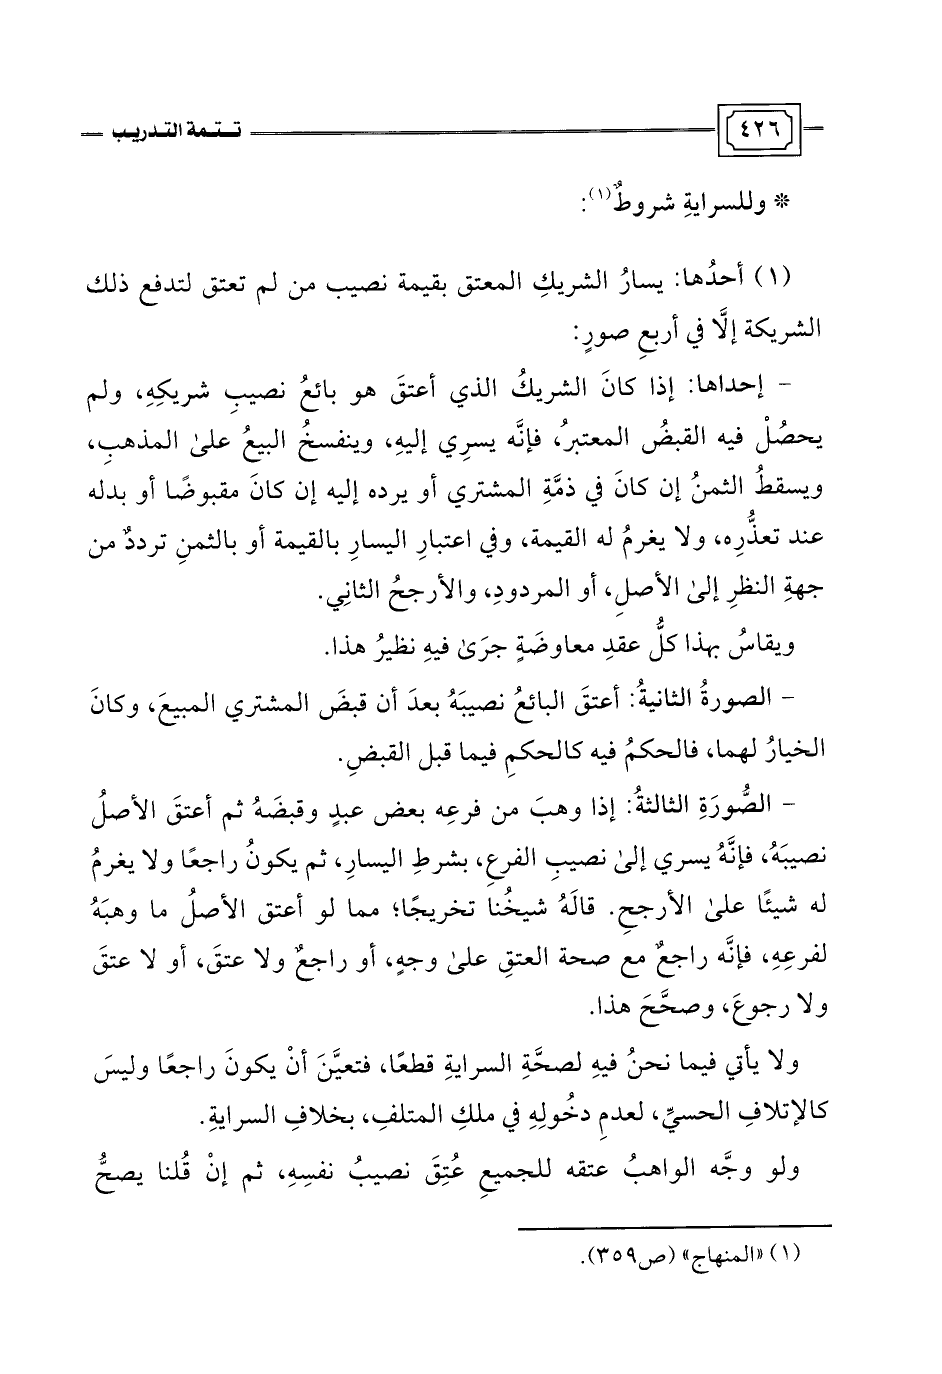 ٤٢٦
تتمة التدريب
* وللسرايةِ شروطٌ(١):
(١) أحدُها: يسارُ الشريكِ المعتق بقيمة نصيب من لم تعتق لتدفع ذلك
الشريكة إلَّا في أربعِ صورٍ:
- إحداها: إذا كانَ الشريكُ الذي أعتقَ هو بائعُ نصيبِ شريكِهِ، ولم
يحصُلْ فيه القبضُ المعتبرُ، فإنَّه يسرِي إليهِ، وينفسخُ البيعُ علىٰ المذهبِ،
ويسقطُ الثمنُ إن كانَ في ذمَّةِ المشتري أو يرده إليه إن كانَ مقبوضًا أو بدله
عند تعذُّرِه، ولا يغرمُ له القيمة، وفي اعتبارِ اليسارِ بالقيمة أو بالثمنِ ترددٌ من
جهةِ النظرِ إلىٰ الأصلِ، أو المردودِ، والأرجحُ الثانِي.
ويقاسُ بهذا كلُّ عقدِ معاوضَةٍ جرَىٰ فيهِ نظيرُ هذا.
- الصورةُ الثانيةُ: أعتقَ البائعُ نصيبَهُ بعدَ أن قبضَ المشتري المبيعَ، وكانَ
الخيارُ لهما، فالحكمُ فيه كالحكمِ فيما قبل القبضِ.
- الصُّورَةِ الثالثةُ: إذا وهبَ من فرعِه بعض عبدٍ وقبضَهُ ثم أعتقَ الأصلُ
نصيبَهُ، فإنَّهُ يسري إلىٰ نصيبِ الفرعِ، بشرطِ اليسارِ، ثم يكونُ راجعًا ولا يغرمُ
له شيئًا علىٰ الأرجحِ. قالَهُ شيخُنا تخريجًا؛ مما لو أعتق الأصلُ ما وهبَهُ
لفرعِهِ، فإنَّه راجعٌ مع صحة العتقِ علىٰ وجهٍ، أو راجعٌ ولا عتقَ، أو لا عتقَ
ولا رجوعَ، وصحَّحَ هذا.
ولا يأتي فيما نحنُ فيهِ لصحَّةِ السرايةِ قطعًا، فتعيَّنَ أنْ يكونَ راجعًا وليسَ
كالإتلافِ الحسيِّ، لعدمِ دخُولِهِ في ملكِ المتلفِ، بخلافِ السرايةِ.
ولو وجَّه الواهبُ عتقه للجميعِ عُتِقَ نصيبُ نفسِهِ، ثم إنْ قُلنا يصحُّ
(١) «المنهاج» (ص٣٥٩).